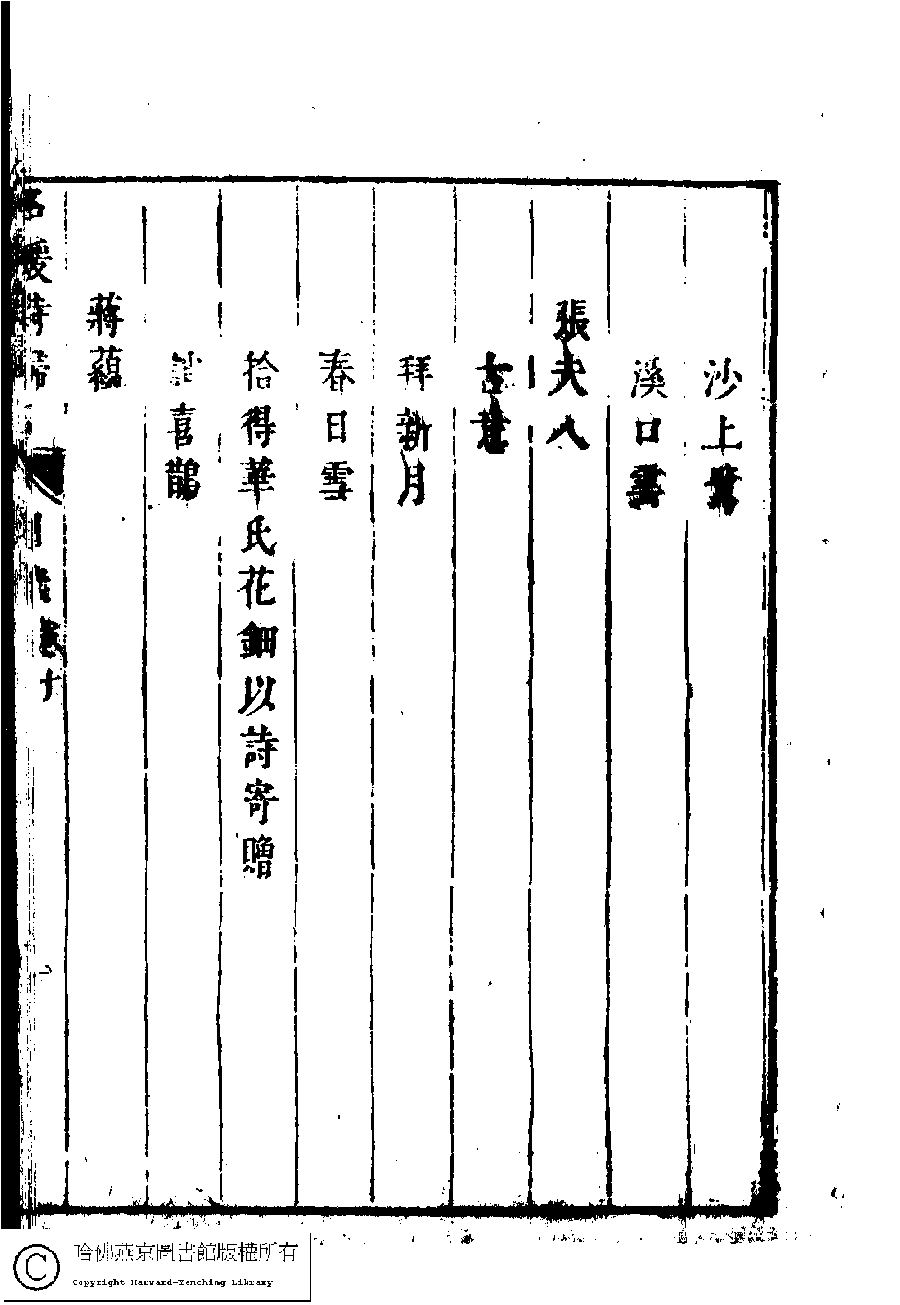 沙上鷺
溪口雲
張夫人
古意
拜新月
春日雪
拾得華氏花鈿以詩寄贈
喜鵲
蔣蘊
名媛詩歸 卷十
哈佛燕京圖書館版權所有
Copyright Harvard-Yenching Library